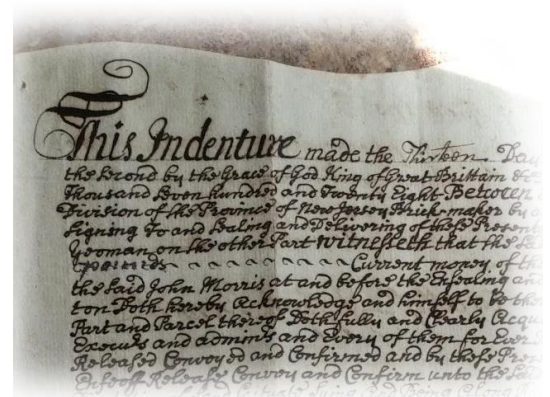 This Indenture made the Thirteen Day
the Second by the Grace of God King of Great Brittain &
Thousand Seven hundred and Twenty Eight Between
Division of the Province of New Jersey Brick-maker by
Signing To and Sealing and Delivering of these Present
Yeoman on the other Part Witnesseth that the
pounds Current money of th
the Said John Morris at and before the Ensealing an
ton Doth hereby Acknowledge and himself to be ther
Part and Parcel thereof Doth fully and Clearly Acqu
Execurs and adminrs and Every of them for Ever
Released Conveyed and Confirmed and by these Pres
Release Convey and Confirm unto the